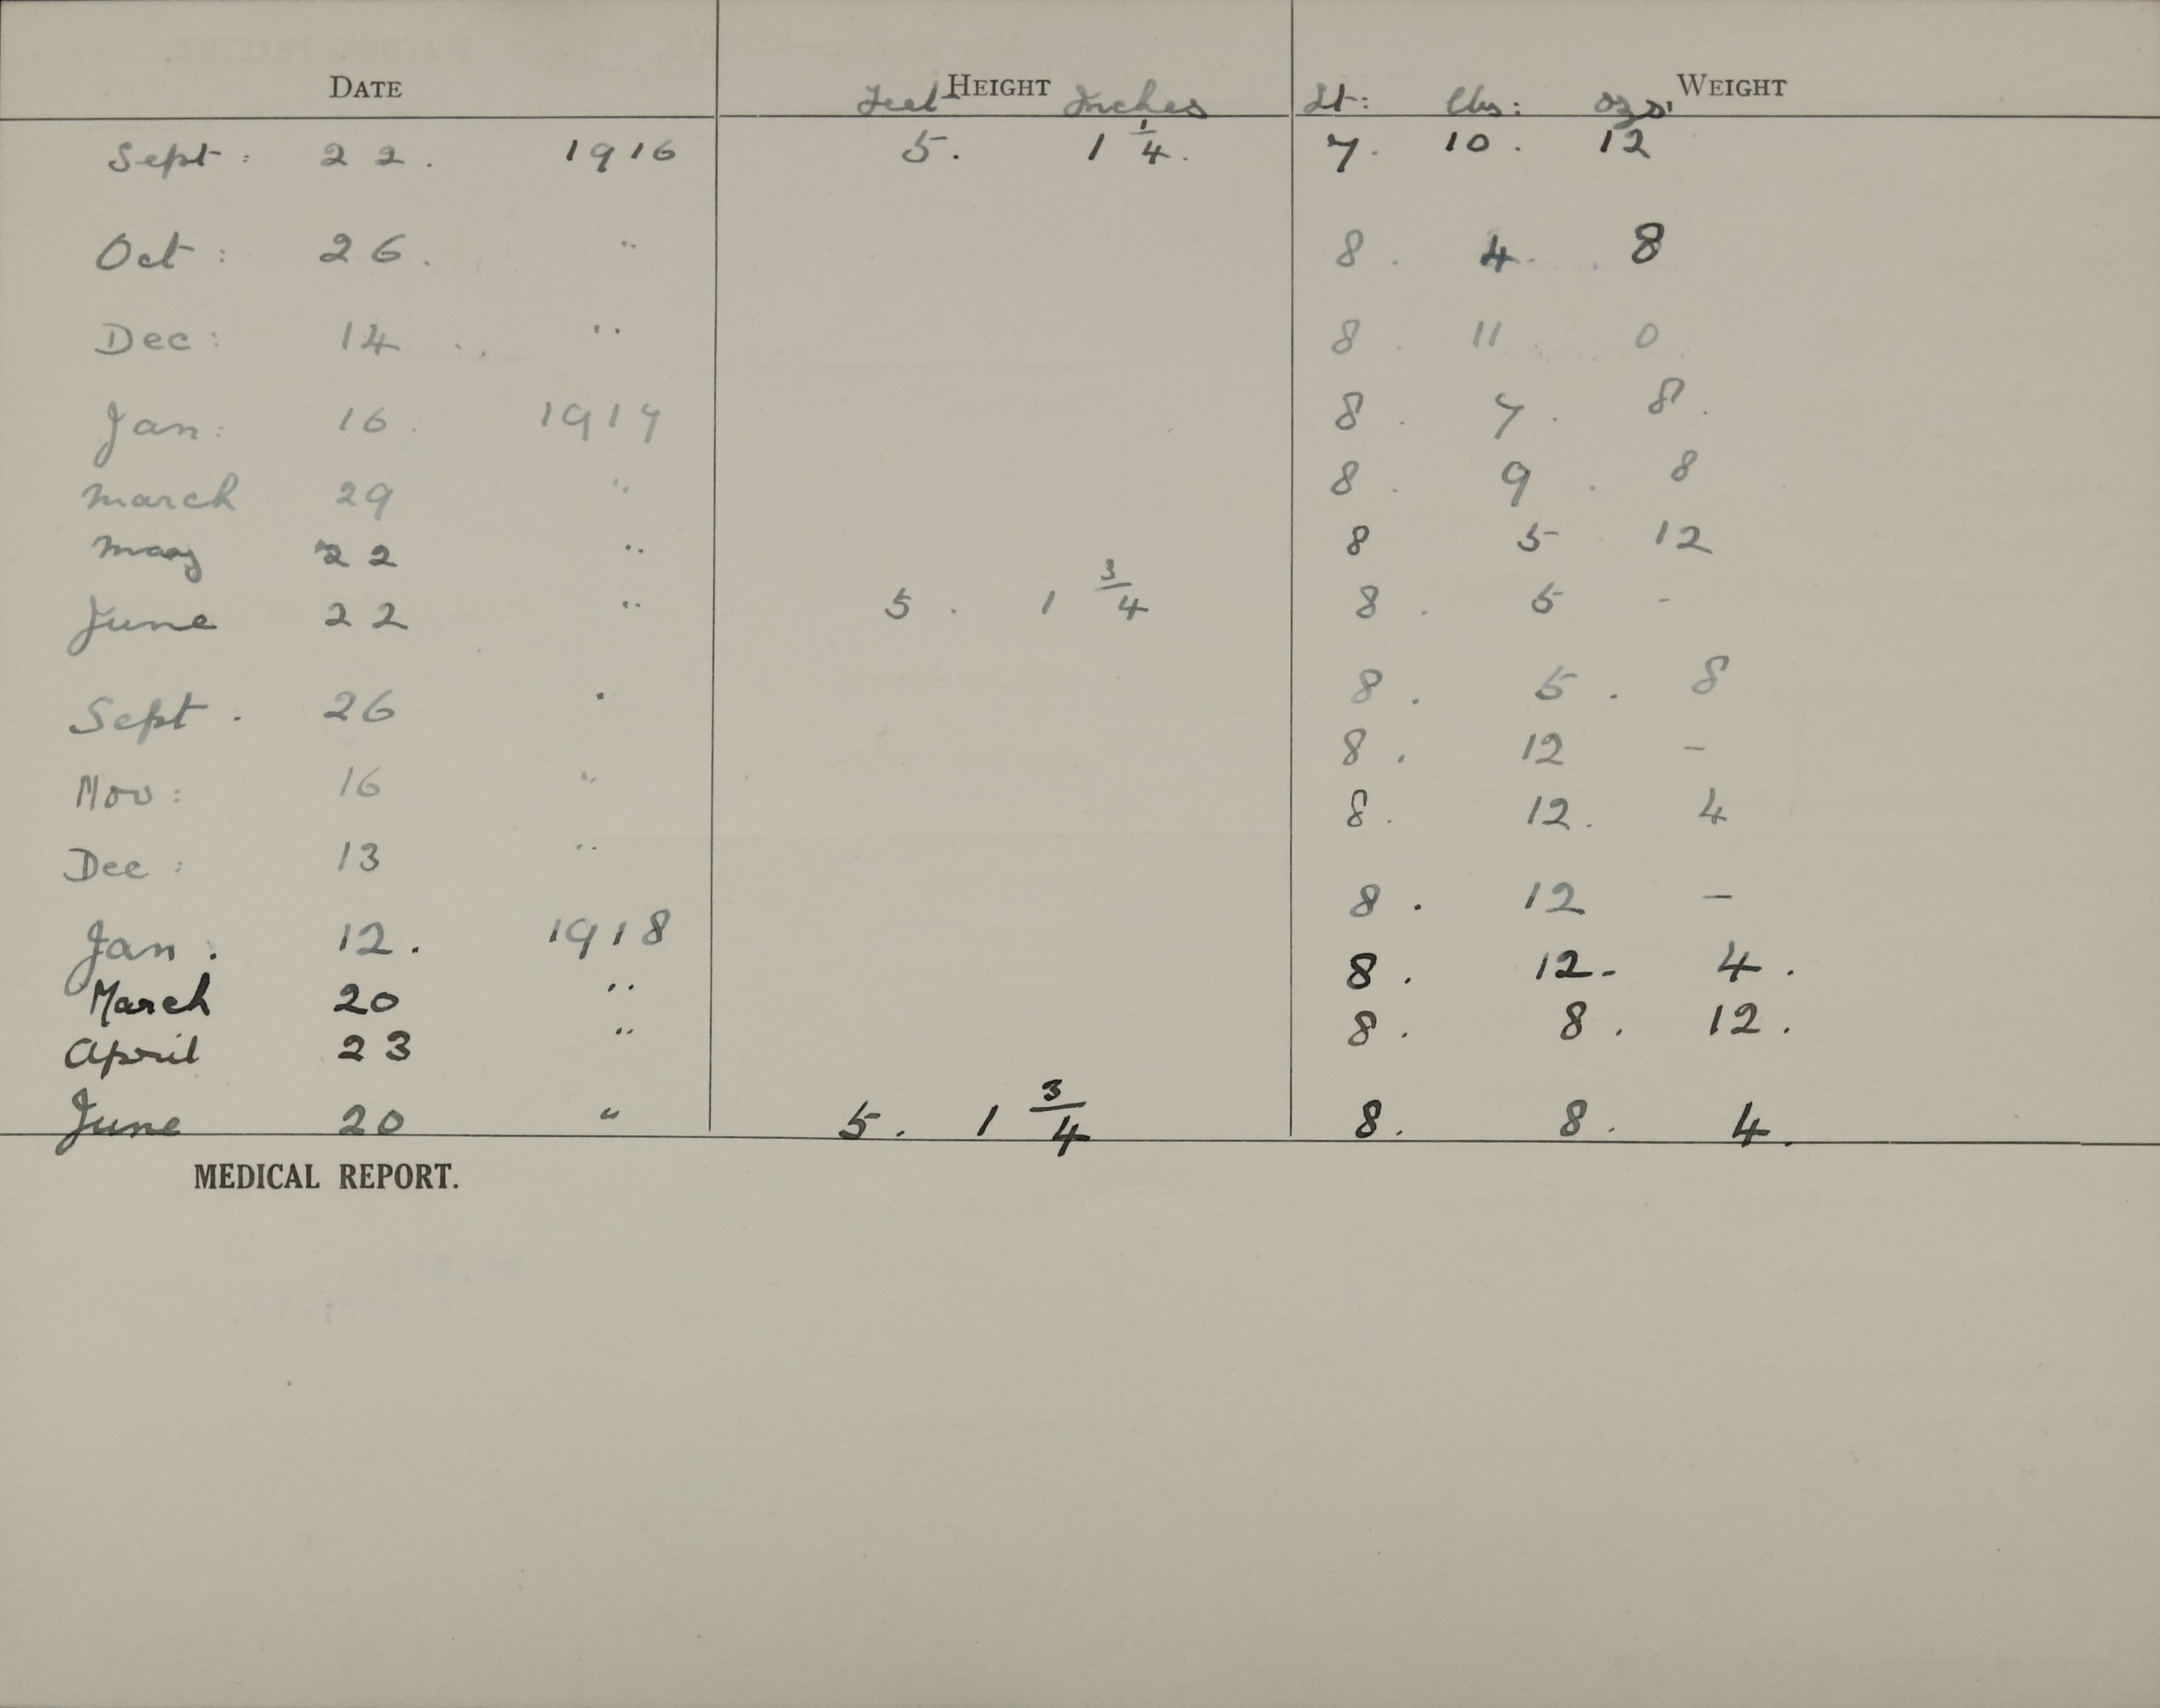 DATE HEIGHT WEIGHT
Feet Inches St: lbs: ozs.
Sept: 22. 1916 5. 1 1/4. 7. 10. 12
Oct: 26. " 8. 4. 8
Dec: 14 " 8. 11 0
Jan: 16. 1917 8. 7. 8.
March 29 " 8. 9. 8
May 22 " 8 5 12
June 22 " 5. 1 3/4 8. 5 -
Sept. 26 " 8. 5. 8
Nov: 16 " 8. 12 -
Dec: 13 " 8. 12. 4
Jan: 12. 1918 8. 12 -
March 20 " 8. 12- 4.
April 23 " 8. 8. 12.
June 20 " 5. 1 3/4 8. 8. 4.
MEDICAL REPORT.